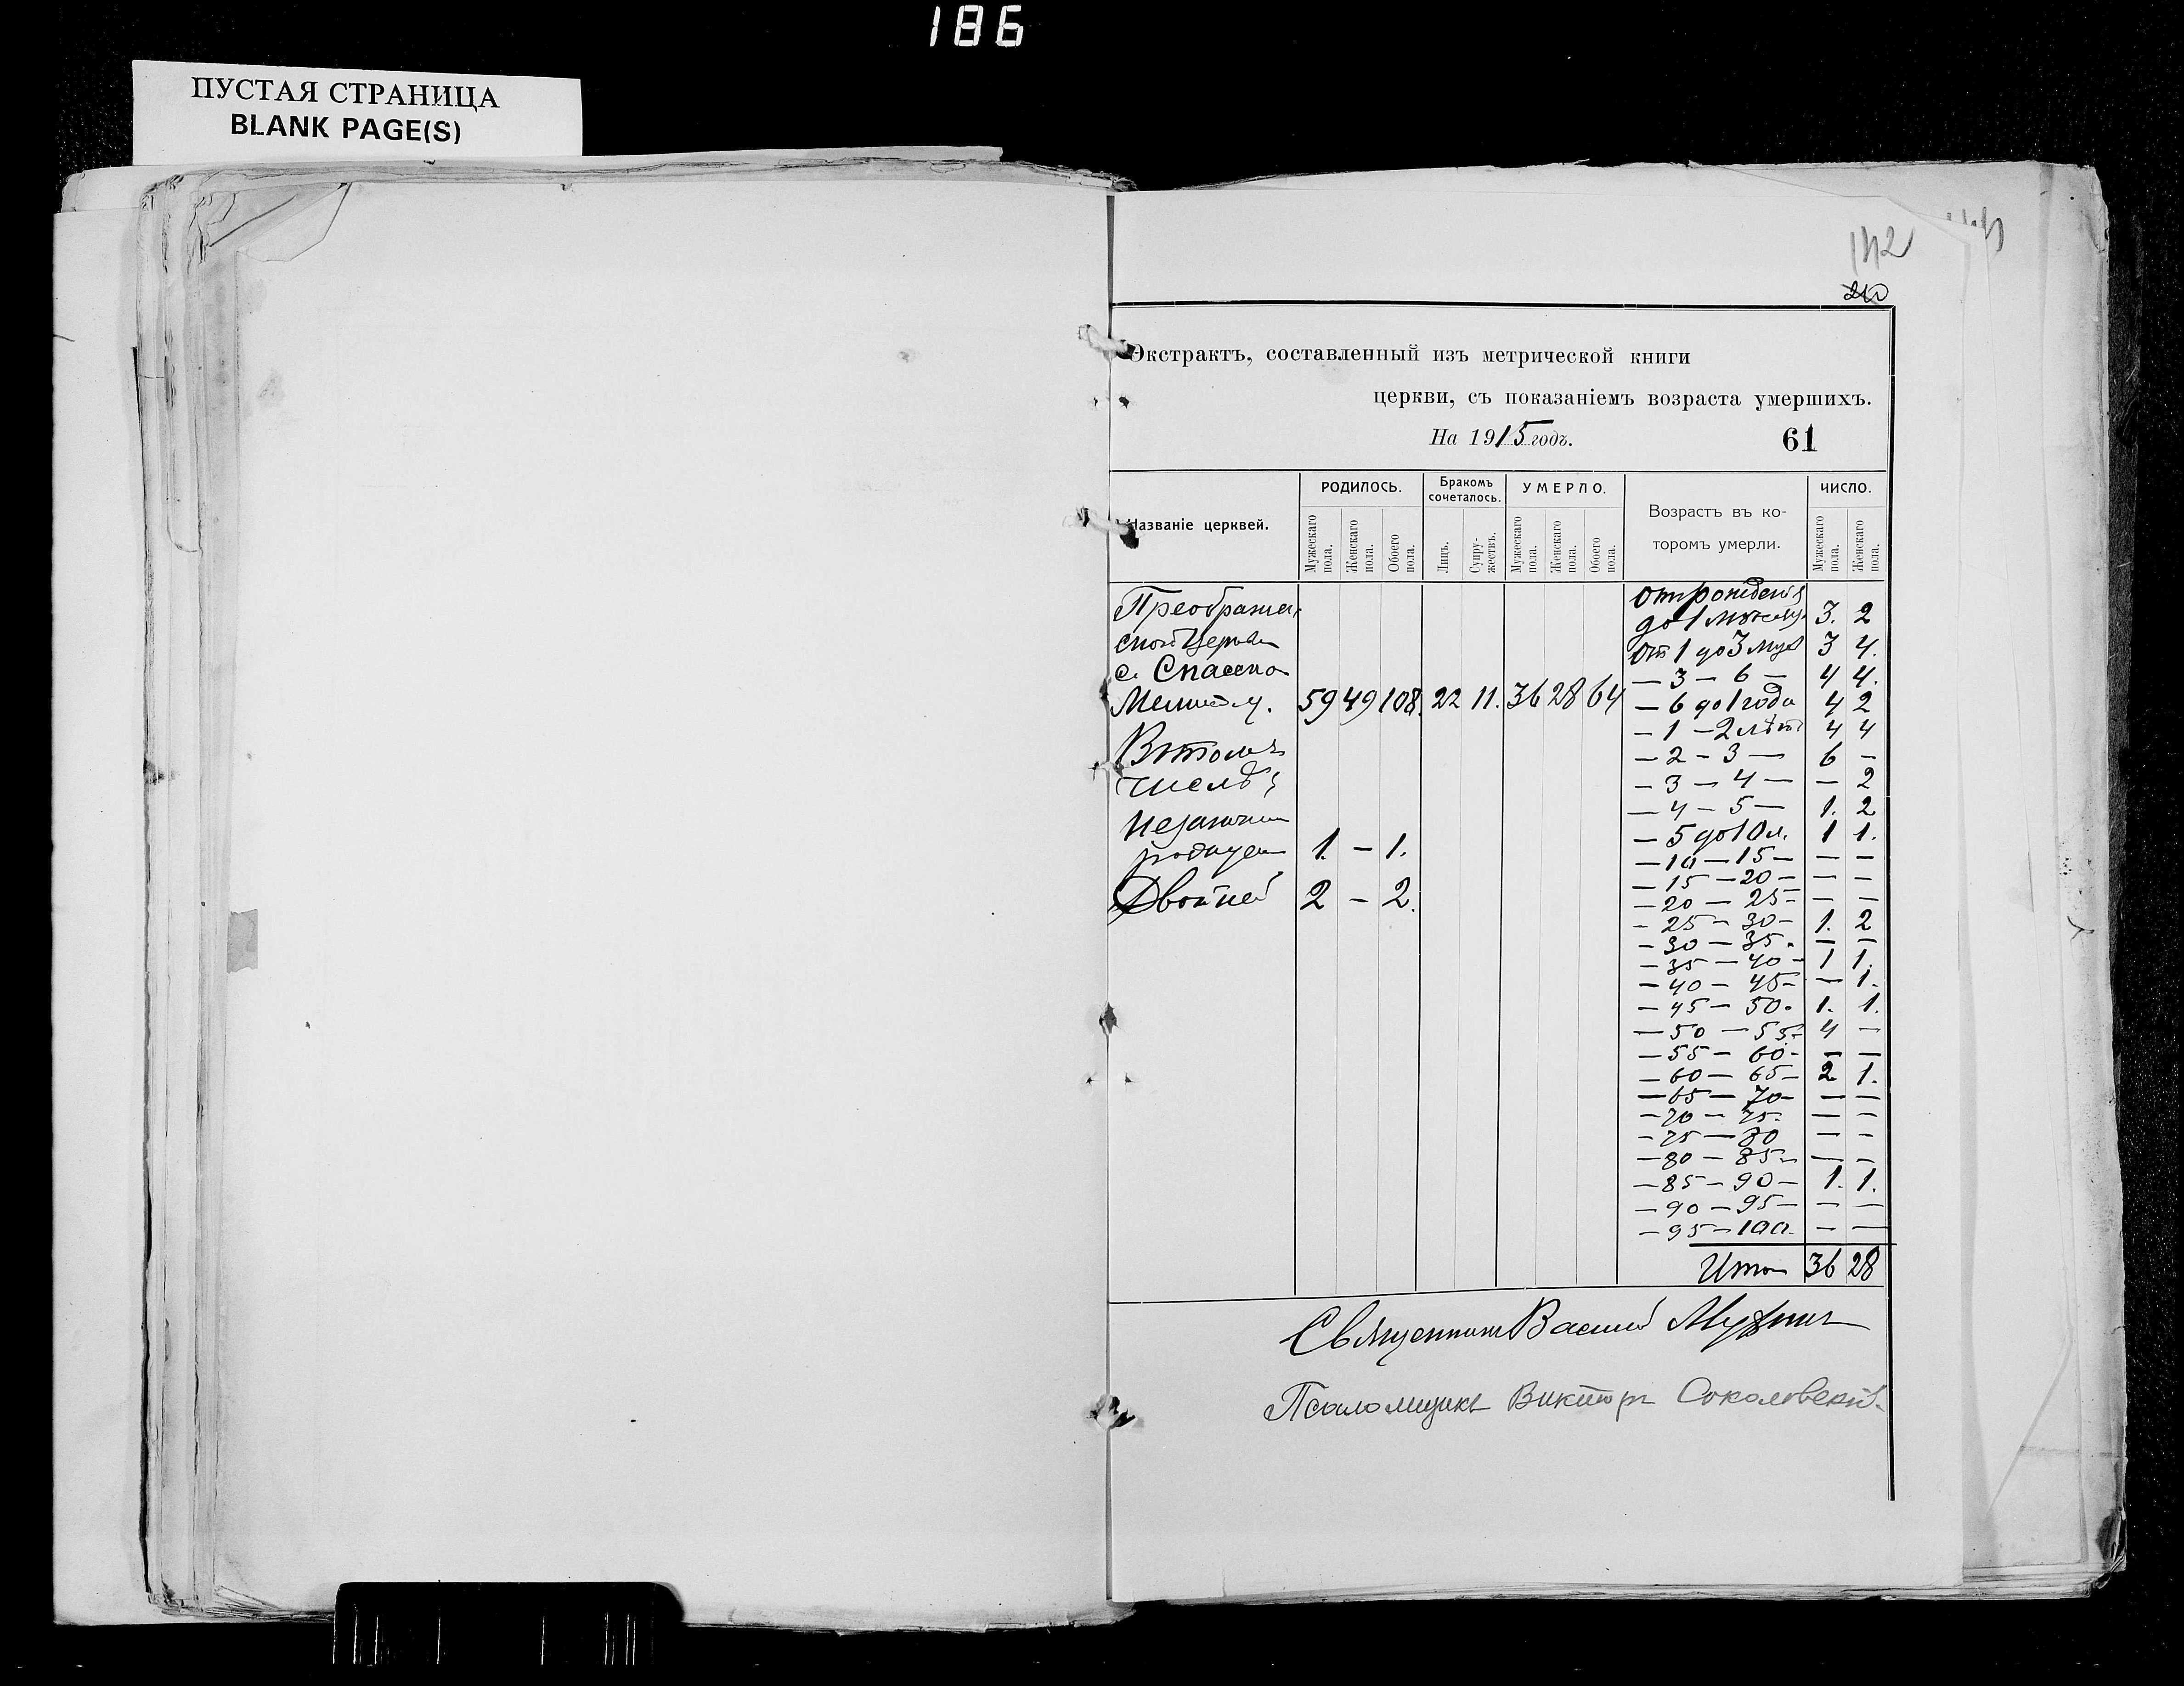 186
ПУСТАЯ СТРАНИЦА
BLANK PAGE(S)
142
Экстрактъ, составленный изъ метрической книги
церкви, съ показаніемъ возраста умершихъ.
На 1915 годъ. 61
Названіе церквей. РОДИЛОСЬ. Бракомъ сочеталось. УМЕРЛО. Возрастъ въ которомъ умерли. ЧИСЛО.
Мужескаго пола. Женскаго пола. Обоего пола. Лицъ. Супружествъ. Мужескаго пола. Женскаго пола. Обоего пола. Мужескаго пола. Женскаго пола.
Преображен
ской Церкви
с. Спасско
Мелит. у. 59 49 108. 22 11. 36 28 64
Въ томъ
числѣ:
незакон
рожден 1. — 1.
Двойней 2 — 2.
от рожденія
до 1 мѣсяц. 3. 2
От 1 до 3 мѣс 3 4.
— 3 — 6 — 4 4.
— 6 до 1 года 4 2
— 1 — 2 лѣтъ 4 4
— 2 — 3 — 6 —
— 3 — 4 — — 2
— 4 — 5 — 1. 2
— 5 до 10 л. 1 1.
— 10 — 15 — — —
— 15 — 20 — — —
— 20 — 25 — — —
— 25 — 30 — 1. 2
— 30 — 35 . — —
— 35 — 40 — 1 1.
— 40 — 45 — — 1.
— 45 — 50 . 1. 1.
— 50 — 55 — 4 —
— 55 — 60 — — —
— 60 — 65 — 2 1.
— 65 — 70 — — —
— 70 — 75 — — —
— 75 — 80 — —
— 80 — 85 — — —
— 85 — 90 — 1. 1.
— 90 — 95 — — —
— 95 — 100 . — —
Итого 36 28
Священникъ Василій
Псаломщикъ Викторъ Соколовскій.